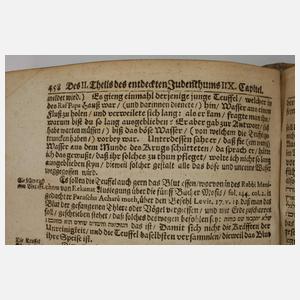 458 Des II. Theils des entdeckten Judenthums IIX. Capitel.
meldet wird.) Es gieng einmahl derjenige junge Teuffel / welcher in
des Raf Papa Hauß war / (und darinnen dienete /) hin / Wasser aus einem
Fluß zu holen / und verweilete sich lang: als er kam / fragte man ihn /
warum bist du so lang ausgeblieben? Er aber gab zur Antwort / (ich
habe warten müssen /) biß das böse Wasser / (von welchem die Teuffel ge-
truncken haben /) vorbey war. Unterdessen sahe er / daß sie das
Wasser aus dem Munde des Krugs schütteten / da sprach er / hätte
ich das gewust / daß ihr solches zu thun pfleget / wolte ich nicht so lang
ausgeblieben seyn / dieweil solcher gestalt alle das böse und unreine Wesen
weggegossen wird.
Es sollen die Teuffel auch gern das Blut essen / wovon in des Rabbi Mena-
chem von Rekanat Auslegung über die fünff Bücher Mosis / fol. 134. col. 1. in
gedachter Parascha Acharè moth, über den Befehl Levit. 17. v. 13. daß man das
Blut der gefangenen Thier- oder Vögel vergiessen / und mit Erde zuscharren
soll / geschrieben stehet / daß solches deswegen befohlen sey:
das ist / Damit sich nicht die Kräfften der
Unreinigkeit / und die Teuffel daselbsten versammlen / dieweil das Blut
ihre Speise ist.